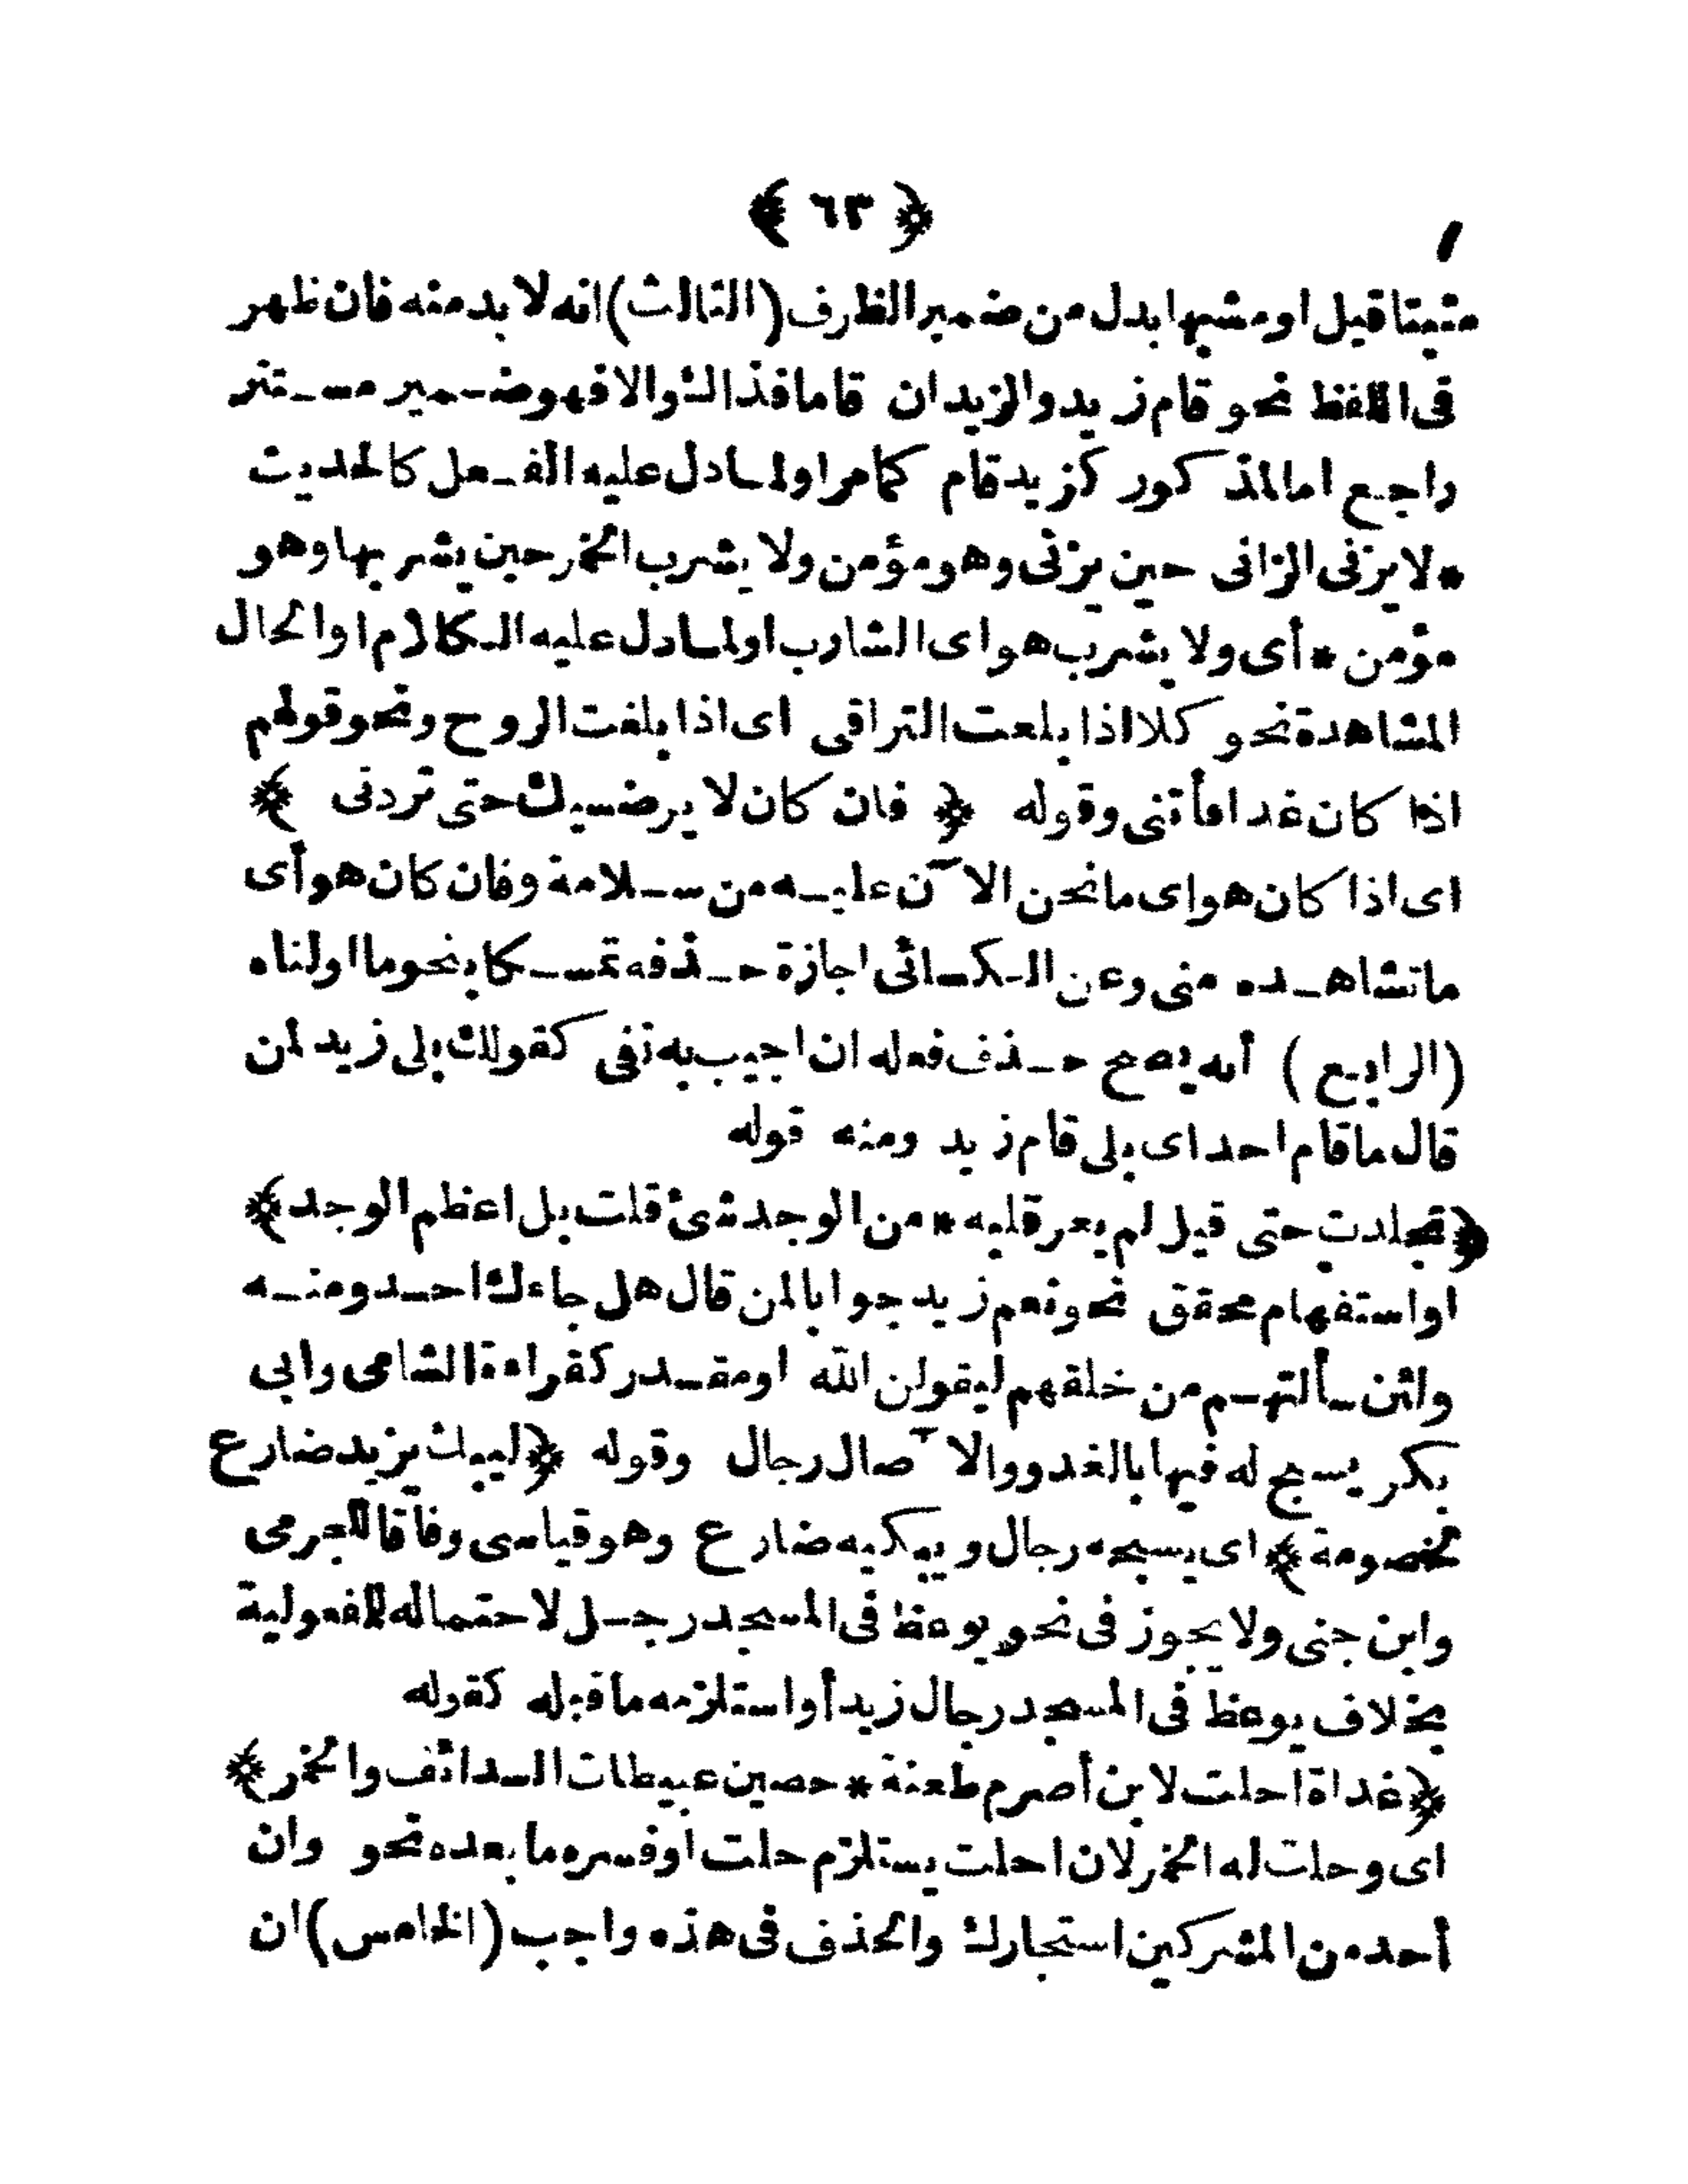 ﴿ ٦٣ ﴾
مثبتا قيل او مشبها بدل من ضمير الظرف (الثالث) انه لا بد منه فان ظهر
فى اللفظ نحو قام زيد والزيدان قاما فذاك والا فهو ضمير مستتر
راجع اما لمذكور كزيد قام كما مر او لما دل عليه الفعل كالحديث
* لا يزنى الزانى حين يزنى وهو مؤمن ولا يشرب الخمر حين يشربها وهو
مؤمن * أى ولا يشرب هو اى الشارب او لما دل عليه الكلام او الحال
المشاهدة نحو كلا اذا بلعت التراقى اى اذا بلغت الروح ونحو قولهم
اذا كان غدا فأتنى وقوله ﴿ فان كان لا يرضيك حتى تردنى ﴾
اى اذا كان هو اى ما نحن الآن عليه من سلامة وفان كان هو أى
ما تشاهده منى وعن الكسائى اجازة حذفه تمسكا بنحو ما اولناه
(الرابع) أنه يصح حذف فعله ان اجيب به نفى كقولك بلى زيد لمن
قال ما قام احد اى بلى قام زيد ومنه قوله
﴿ تجلدت حتى قيل لم يعر قلبه * من الوجد شئ قلت بل اعظم الوجد ﴾
او استفهام محقق نحو نعم زيد جوابا لمن قال هل جاءك احد ومنه
ولئن سألتهم من خلقهم ليقولن الله او مقدر كقراءة الشامى وابى
بكر يسبح له فيها بالغدو والآصال رجال وقوله ﴿ ليبك يزيد ضارع
لخصومة ﴾ اى يسبحه رجال ويبكيه ضارع وهو قياسى وفاقا للجرمى
وابن جنى ولا يجوز فى نحو يوعظ فى المسجد رجل لاحتماله للمفعولية
بخلاف يوعظ فى المسجد رجال زيد أو استلزمه ما قبله كقوله
﴿ غداة احلت لابن أصرم طعنة * حصين عبيطات السدائف والخمر ﴾
اى وحلت له الخمر لان احلت يستلزم حلت او فسره ما بعده نحو وان
أحد من المشركين استجارك والحذف فى هذه واجب (الخامس) ان